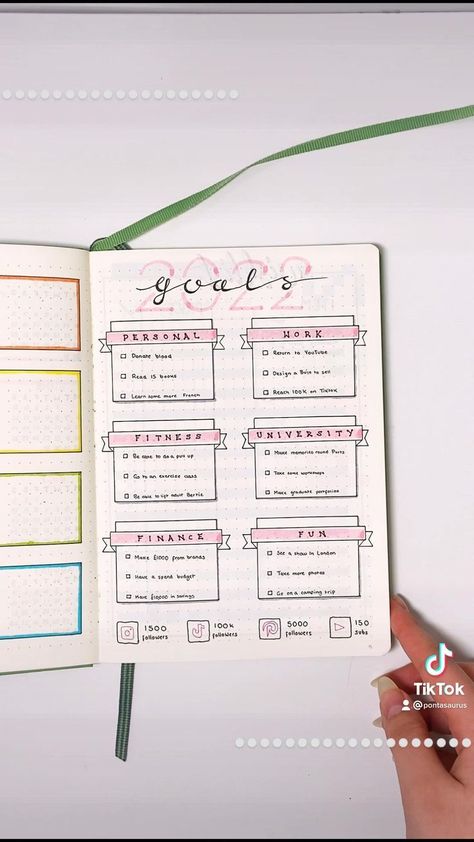 2022
goals
PERSONAL
Donate blood
Read 15 books
Learn some more French
WORK
Return to YouTube
Design a BuJo to sell
Reach 100K on TikTok
FITNESS
Be able to do a pull up
Go to an exercise class
Be able to lift adult Bertie
UNIVERSITY
Make memories round Ports
Take some workshops
Make graduate portfolio
FINANCE
Make £1000 from brands
Have a spend budget
Have £10000 in savings
FUN
See a show in London
Take more photos
Go on a camping trip
1500 followers
100K followers
5000 followers
150 subs
TikTok
@pontasaurus